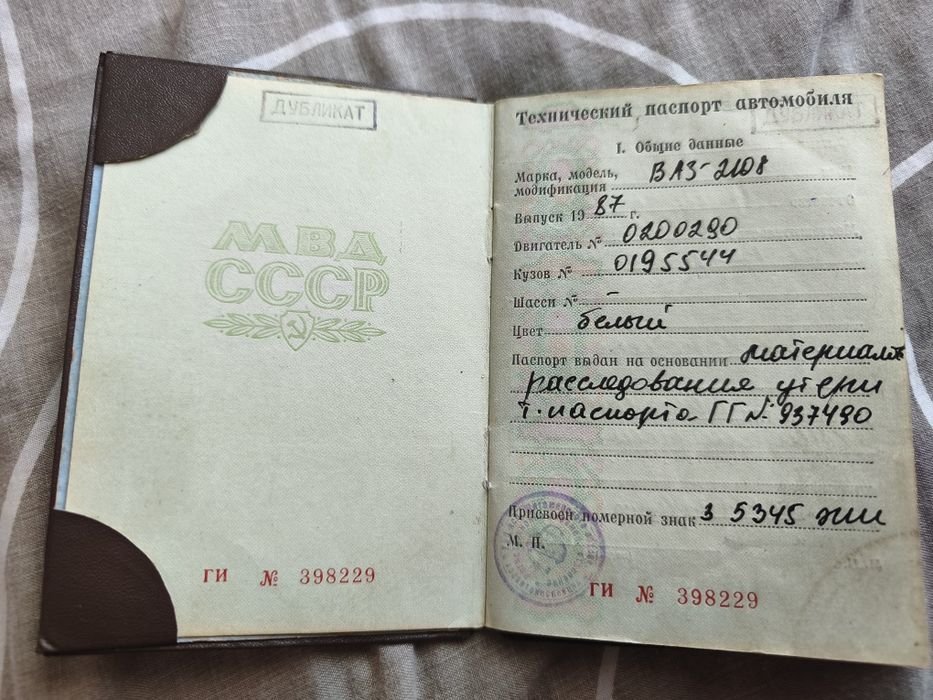 ДУБЛИКАТ
МВД
СССР
ГИ № 398229
Технический паспорт автомобиля
I. Общие данные
Марка, модель, ВАЗ-2108
модификация
Выпуск 1987 г.
Двигатель № 0200290
Кузов № 0195544
Шасси № –
Цвет белый
Паспорт выдан на основании материалов
расследования утери
т. паспорта ГГ № 937490
Присвоен номерной знак З 5345 ЖИ
М. П.
ГИ № 398229